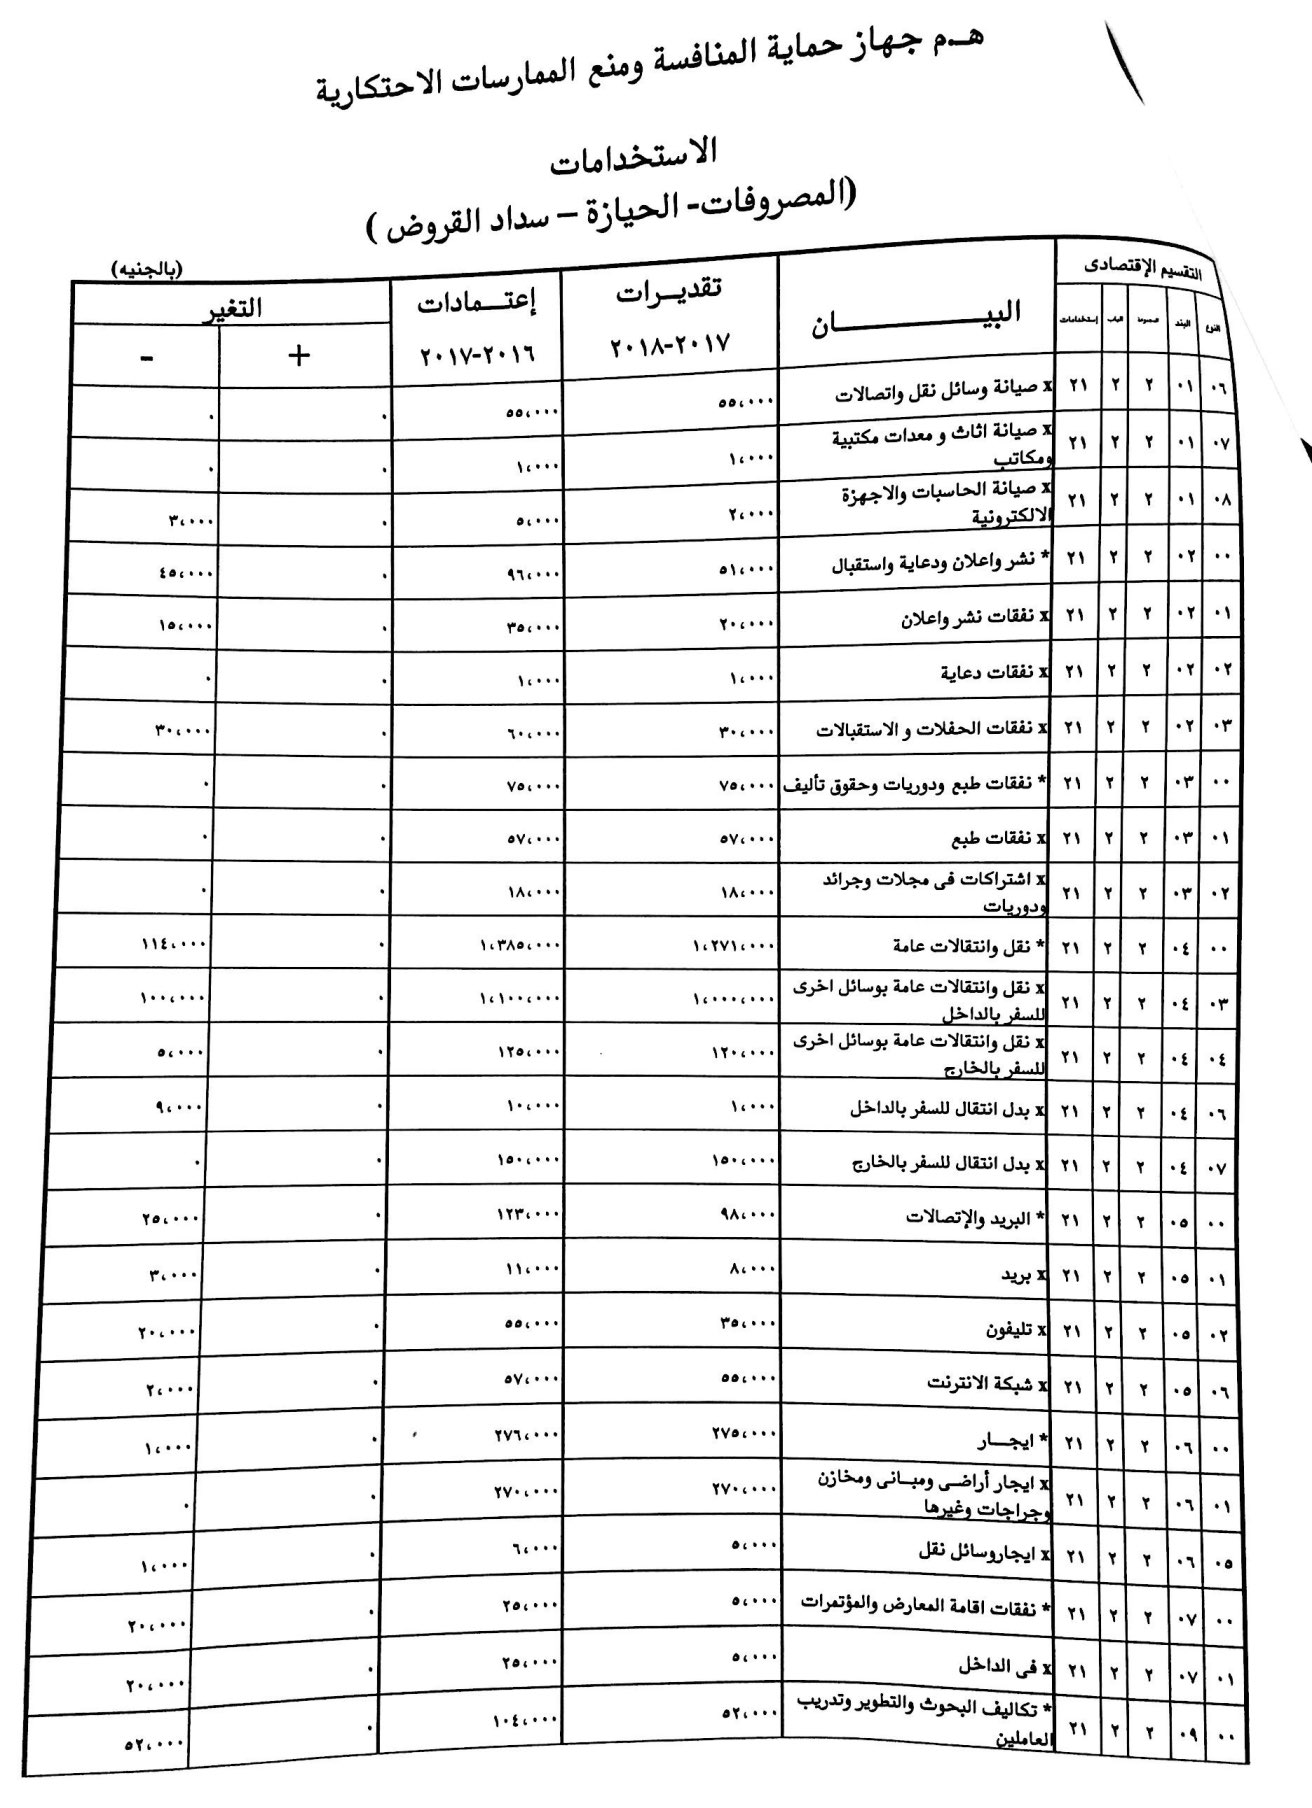 هـ.م جهاز حماية المنافسة ومنع الممارسات الاحتكارية
الاستخدامات
(المصروفات- الحيازة – سداد القروض )
(بالجنيه)
التقسيم الإقتصادى البيـــــــــان تقديـرات إعتـــمادات التغير
النوع البند المجموعة الباب إستخدامات ٢٠١٧-٢٠١٨ ٢٠١٦-٢٠١٧ + -
٠٦ ٠١ ٢ ٢ ٢١ x صيانة وسائل نقل واتصالات ٥٥،٠٠٠ ٥٥،٠٠٠ ٠ ٠
٠٧ ٠١ ٢ ٢ ٢١ x صيانة اثاث و معدات مكتبية
ومكاتب ١،٠٠٠ ١،٠٠٠ ٠ ٠
٠٨ ٠١ ٢ ٢ ٢١ x صيانة الحاسبات والاجهزة
الالكترونية ٢،٠٠٠ ٥،٠٠٠ ٠ ٣،٠٠٠
٠٠ ٠٢ ٢ ٢ ٢١ * نشر واعلان ودعاية واستقبال ٥١،٠٠٠ ٩٦،٠٠٠ ٠ ٤٥،٠٠٠
٠١ ٠٢ ٢ ٢ ٢١ x نفقات نشر واعلان ٢٠،٠٠٠ ٣٥،٠٠٠ ٠ ١٥،٠٠٠
٠٢ ٠٢ ٢ ٢ ٢١ x نفقات دعاية ١،٠٠٠ ١،٠٠٠ ٠ ٠
٠٣ ٠٢ ٢ ٢ ٢١ x نفقات الحفلات و الاستقبالات ٣٠،٠٠٠ ٦٠،٠٠٠ ٠ ٣٠،٠٠٠
٠٠ ٠٣ ٢ ٢ ٢١ * نفقات طبع ودوريات وحقوق تأليف ٧٥،٠٠٠ ٧٥،٠٠٠ ٠ ٠
٠١ ٠٣ ٢ ٢ ٢١ x نفقات طبع ٥٧،٠٠٠ ٥٧،٠٠٠ ٠ ٠
٠٢ ٠٣ ٢ ٢ ٢١ x اشتراكات فى مجلات وجرائد
ودوريات ١٨،٠٠٠ ١٨،٠٠٠ ٠ ٠
٠٠ ٠٤ ٢ ٢ ٢١ * نقل وانتقالات عامة ١،٢٧١،٠٠٠ ١،٣٨٥،٠٠٠ ٠ ١١٤،٠٠٠
٠٣ ٠٤ ٢ ٢ ٢١ x نقل وانتقالات عامة بوسائل اخرى
للسفر بالداخل ١،٠٠٠،٠٠٠ ١،١٠٠،٠٠٠ ٠ ١٠٠،٠٠٠
٠٤ ٠٤ ٢ ٢ ٢١ x نقل وانتقالات عامة بوسائل اخرى
للسفر بالخارج ١٢٠،٠٠٠ ١٢٥،٠٠٠ ٠ ٥،٠٠٠
٠٦ ٠٤ ٢ ٢ ٢١ x بدل انتقال للسفر بالداخل ١،٠٠٠ ١٠،٠٠٠ ٠ ٩،٠٠٠
٠٧ ٠٤ ٢ ٢ ٢١ x بدل انتقال للسفر بالخارج ١٥٠،٠٠٠ ١٥٠،٠٠٠ ٠ ٠
٠٠ ٠٥ ٢ ٢ ٢١ * البريد والإتصالات ٩٨،٠٠٠ ١٢٣،٠٠٠ ٠ ٢٥،٠٠٠
٠١ ٠٥ ٢ ٢ ٢١ x بريد ٨،٠٠٠ ١١،٠٠٠ ٠ ٣،٠٠٠
٠٢ ٠٥ ٢ ٢ ٢١ x تليفون ٣٥،٠٠٠ ٥٥،٠٠٠ ٠ ٢٠،٠٠٠
٠٦ ٠٥ ٢ ٢ ٢١ x شبكة الانترنت ٥٥،٠٠٠ ٥٧،٠٠٠ ٠ ٢،٠٠٠
٠٠ ٠٦ ٢ ٢ ٢١ * ايجـــار ٢٧٥،٠٠٠ ٢٧٦،٠٠٠ ٠ ١،٠٠٠
٠١ ٠٦ ٢ ٢ ٢١ x ايجار أراضـى ومبـانى ومخازن
وجراجات وغيرها ٢٧٠،٠٠٠ ٢٧٠،٠٠٠ ٠ ٠
٠٥ ٠٦ ٢ ٢ ٢١ x ايجاروسائل نقل ٥،٠٠٠ ٦،٠٠٠ ٠ ١،٠٠٠
٠٠ ٠٧ ٢ ٢ ٢١ * نفقات اقامة المعارض والمؤتمرات ٥،٠٠٠ ٢٥،٠٠٠ ٠ ٢٠،٠٠٠
٠١ ٠٧ ٢ ٢ ٢١ x فى الداخل ٥،٠٠٠ ٢٥،٠٠٠ ٠ ٢٠،٠٠٠
٠٠ ٠٩ ٢ ٢ ٢١ * تكاليف البحوث والتطوير وتدريب
العاملين ٥٢،٠٠٠ ١٠٤،٠٠٠ ٠ ٥٢،٠٠٠